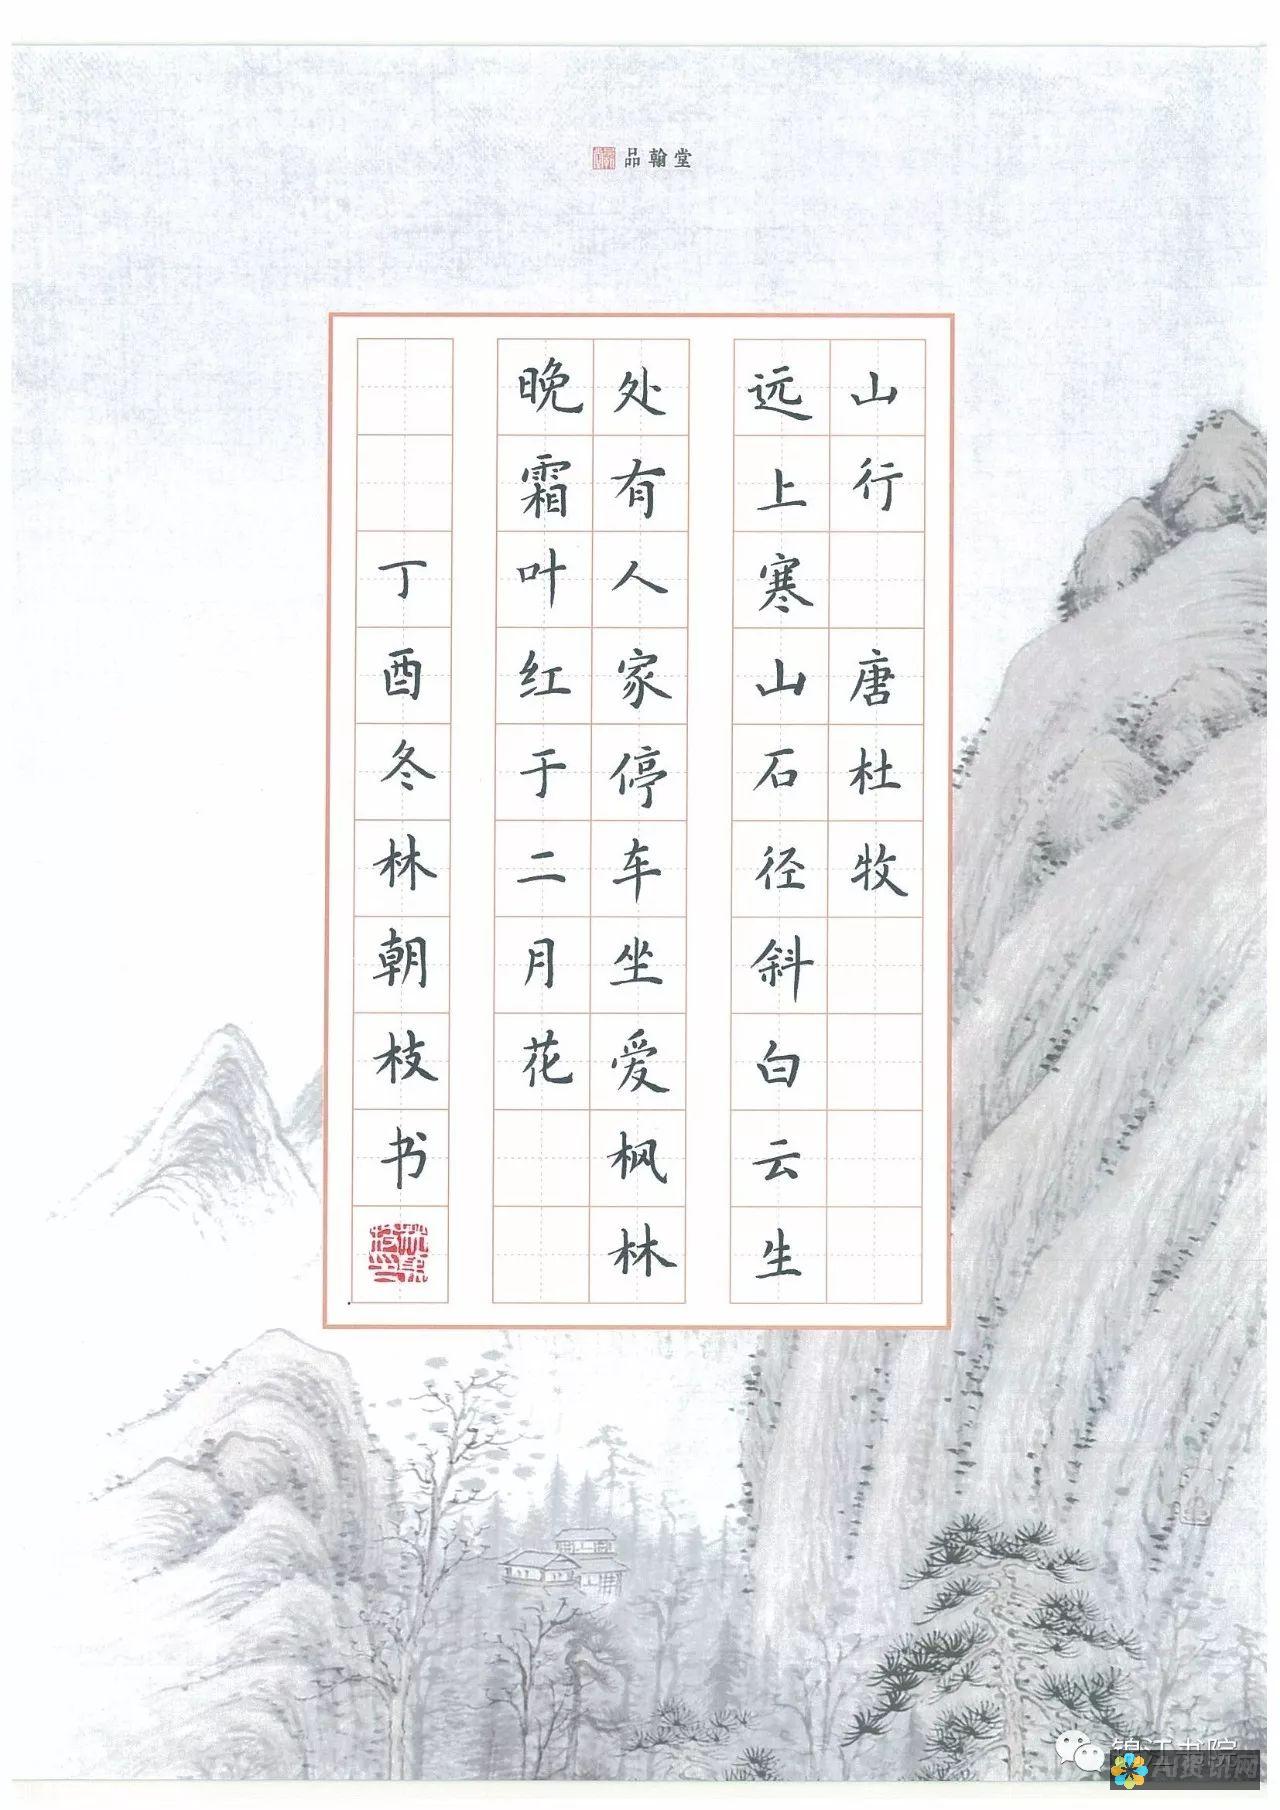 品翰堂
山行 唐杜牧
远上寒山石径斜白云生
处有人家停车坐爱枫林
晚霜叶红于二月花
丁酉冬林朝枝书
锦江书院
AI资讯网